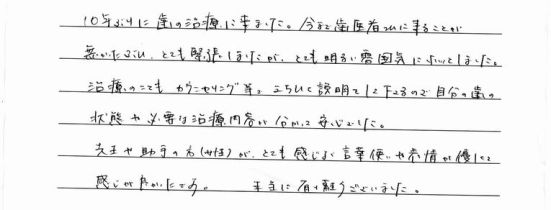 10年ぶりに歯の治療に来ました。今まで歯医者さんに来ることが
無かった為、とても緊張しましたが、とても明るい雰囲気に
治療のことも カウンセリング等、 説明して下さるので自分の歯の
状態や必要な治療内容が分かって安心でした。
先生や助手の方(女性)が、とても感じよく言葉使いや表情が優しく
感じが良かったです。 本当に有り難うございました。